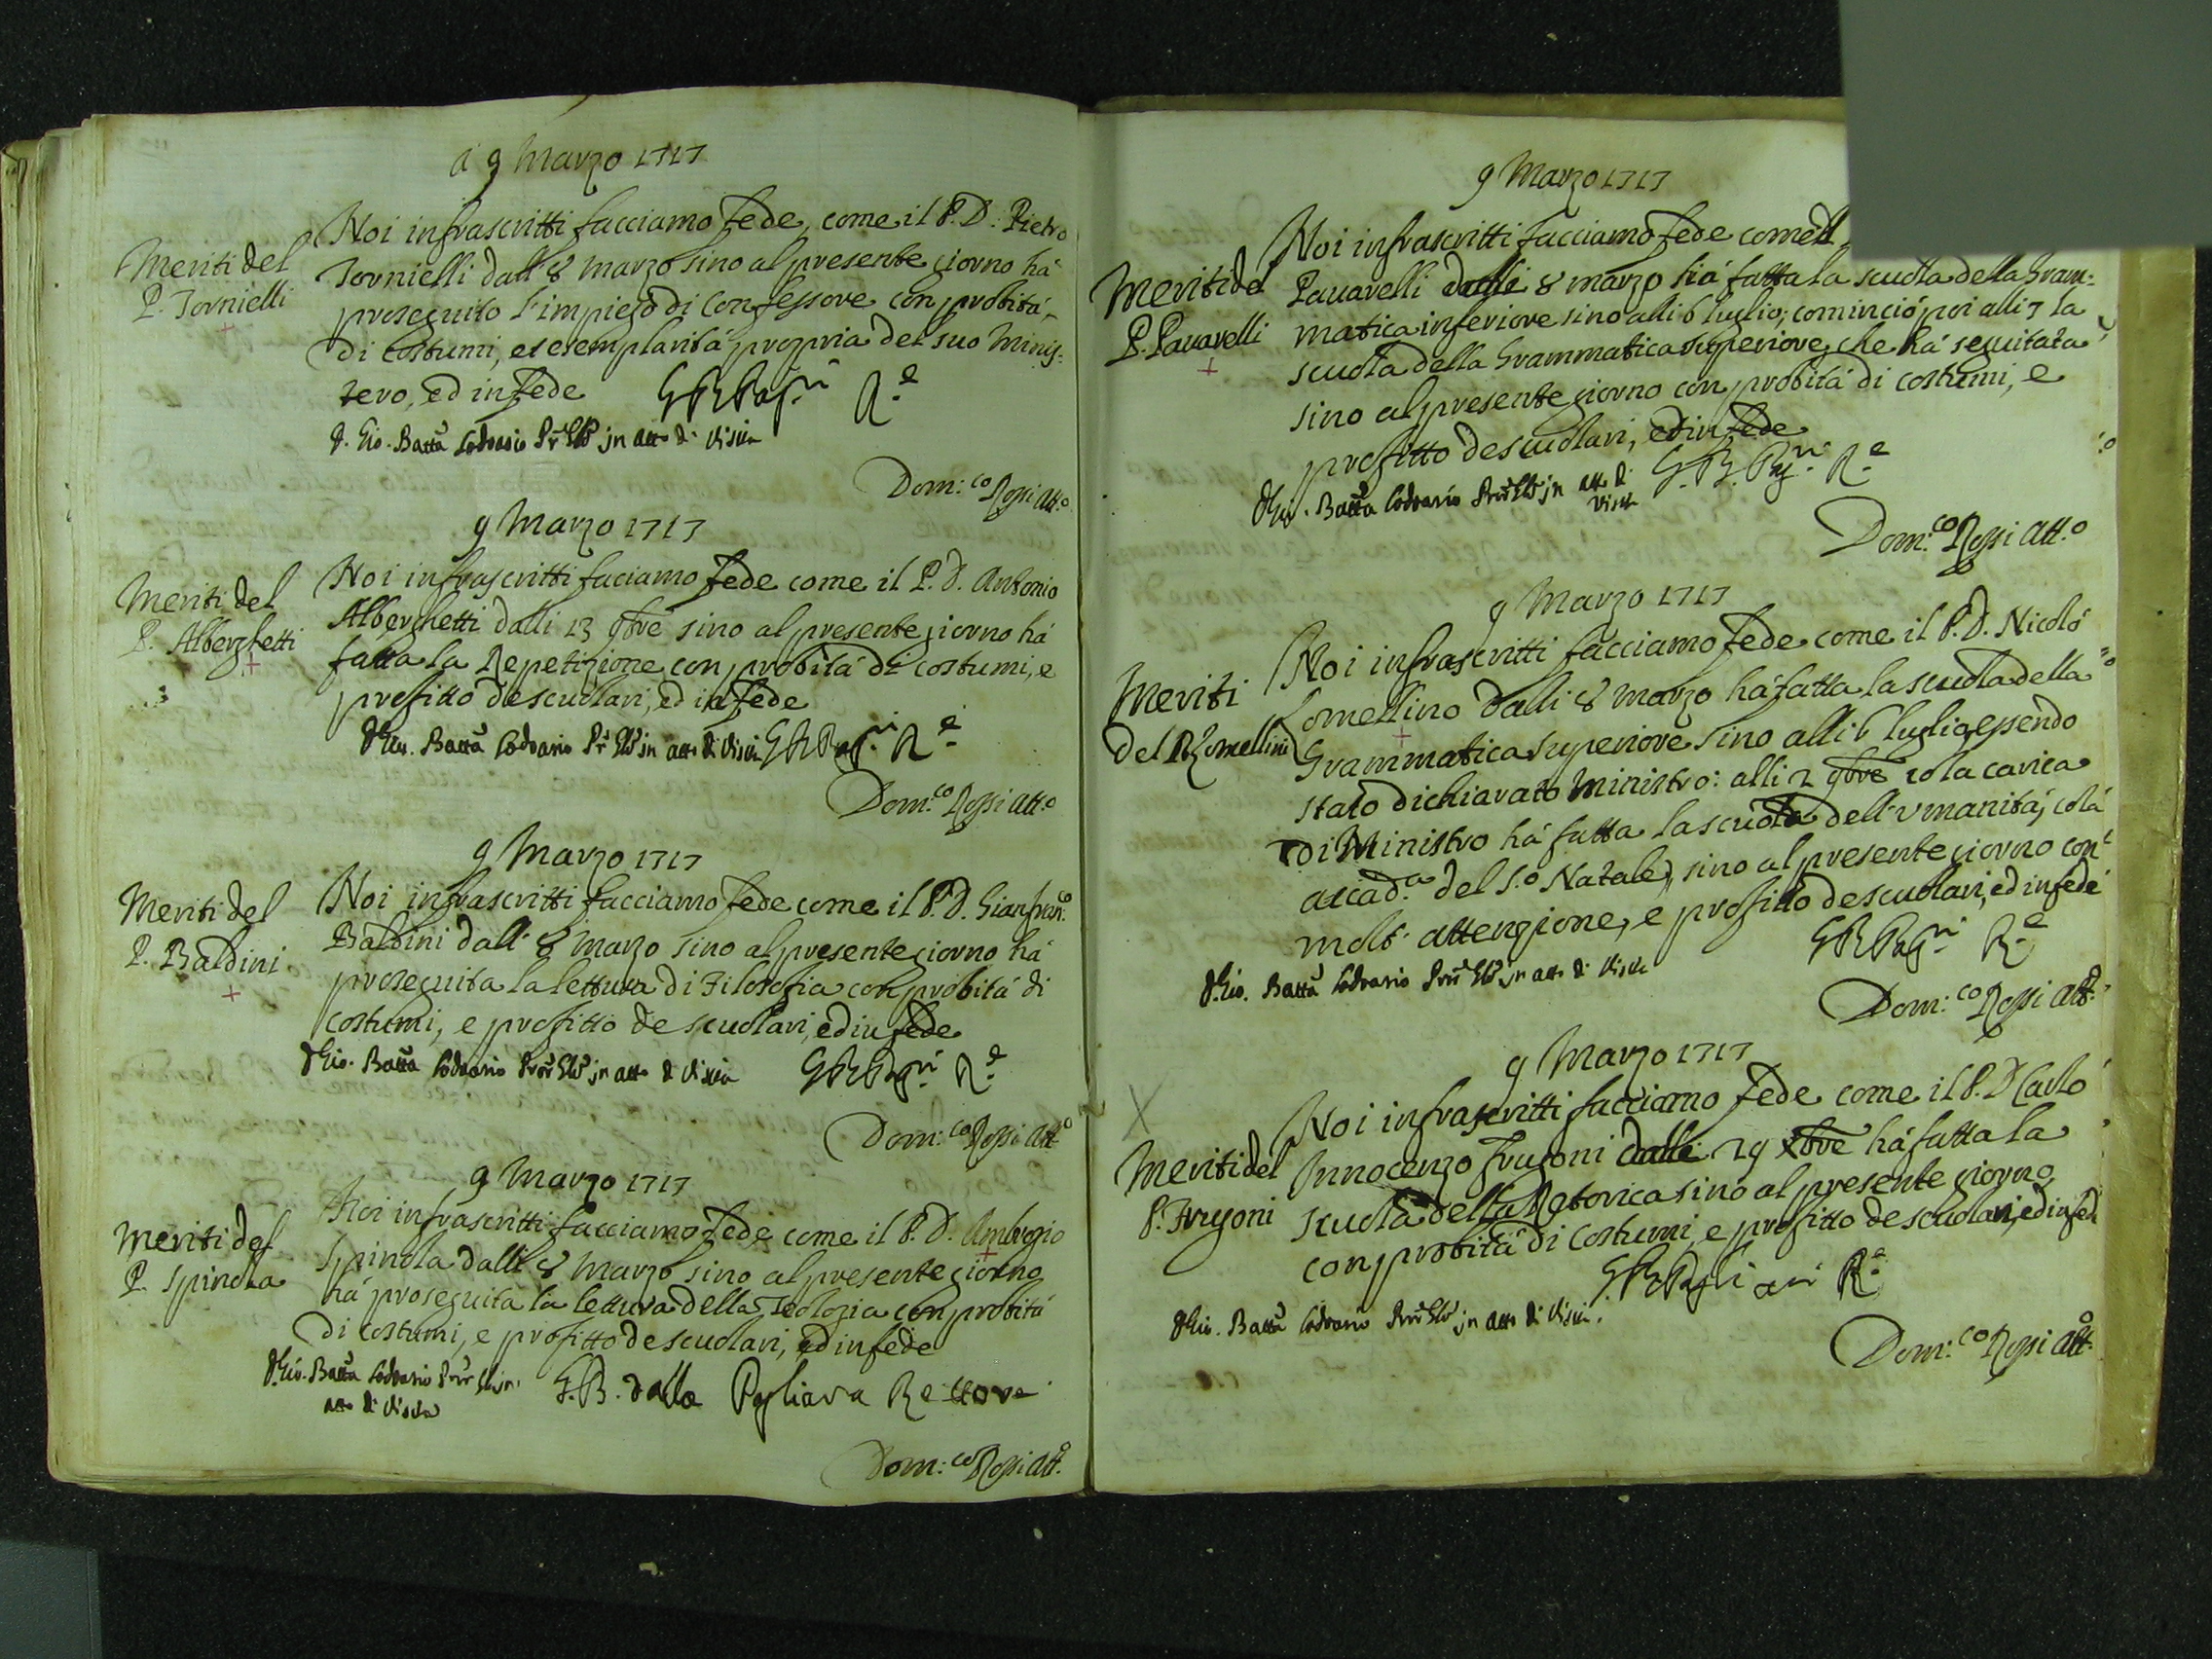 a 9 Marzo 1717
Noi infrascritti facciamo fede, come il P. D. Pietro
Meriti del
P. Tornielli
Tornielli dall' 8 marzo sino al presente giorno há
proseguito l'impiego di Confessore con probitá
di costumi, et esemplaritá propria del suo Minis=
tero, ed in fede
D. Gio. Batta Lodovasio in atto di Visita
Dom:co Rossi Att.o
9 Marzo 1717
Meriti del
P. Alberghetti
Noi infrascritti faciamo fede come il P. D. Antonio
Alberghetti dalli 13 9bre sino al presente giorno há
fatta la Repetizione con probitá di costumi, e
profitto de scuolari, ed in fede
D Gio. Batta Lodovasio in atto di Visita
Dom.co Rossi Att.o
9 Marzo 1717
Meriti del
P. Baldini
Noi infrascritti facciamo fede come il P. D. Gianfran.co
Baldini dall' 8 marzo sino al presente giorno há
proseguita la lettura di Filosofia con probitá di
costumi, e profitto de scuolari, ed in fede
D Gio. Batta Lodovasio in atto di Visita
Dom:co Rossi Att.o
9 Marzo 1717
Meriti del
P. Spinola
Noi infrascritti facciamo fede come il P. D. Ambrogio
Spinola dalli 8 marzo sino al presente giorno
há proseguita la lettura della Teologia con probitá
di costumi, e profitto de scuolari, ed in fede
D. Gio. Batta Lodovasio in
atto di Visita
G. B. dalla Pagliara Rettore
Dom:co Rossi Att.o
9 Marzo 1717
Noi infrascritti facciamo fede come il
Meriti del
P. Pavarelli
Pavarelli dalli 8 marzo há fatta la scuola della Gram=
matica inferiore sino alli 6 luglio; cominció poi alli 7 la
scuola della Grammatica superiore, che há seguitata
sino al presente giorno con probitá di costumi, e
profitto de scuolari, ed in fede
D Gio. Batta Lodovasio in atto di
Visita
Dom.co Rossi Att.o
9 Marzo 1717
Noi infrascritti facciamo fede come il P. D. Nicoló
Meriti
del P. Lomellini
Lomellino dalli 8 marzo há fatta la scuola della
Grammatica superiore sino alli 6 luglio essendo
stato dichiarato Ministro: alli 2 9bre co la carica
di Ministro há fatta la scuola dell'Umanitá, co lá
accad.a del S.o Natale, sino al presente giorno con
molt' attenzione, e profitto de scuolari, ed in fede
D. Gio. Batta Lodovasio in atto di Visita
Dom:co Rossi Att.o
9 Marzo 1717
Noi infrascritti facciamo fede come il P. D Carlo
Meriti del
P. Frugoni
Innocenzo Frugoni dalli 29 Xbre há fatta la
scuola della Retorica sino al presente giorno
con probitá di costumi, e profitto de scuolari, ed in fed
D Gio. Batta Lodovasio in atto di Visita.
Dom:co Rossi Att.o